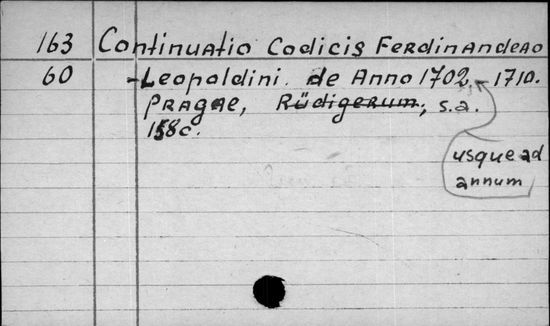 163 Continuatio Codicis Ferdinandeao
60 -Leopoldini de Anno 1702 - 1710.
Pragae, Rüdigerum, s.a.
158c.
usque ad
annum